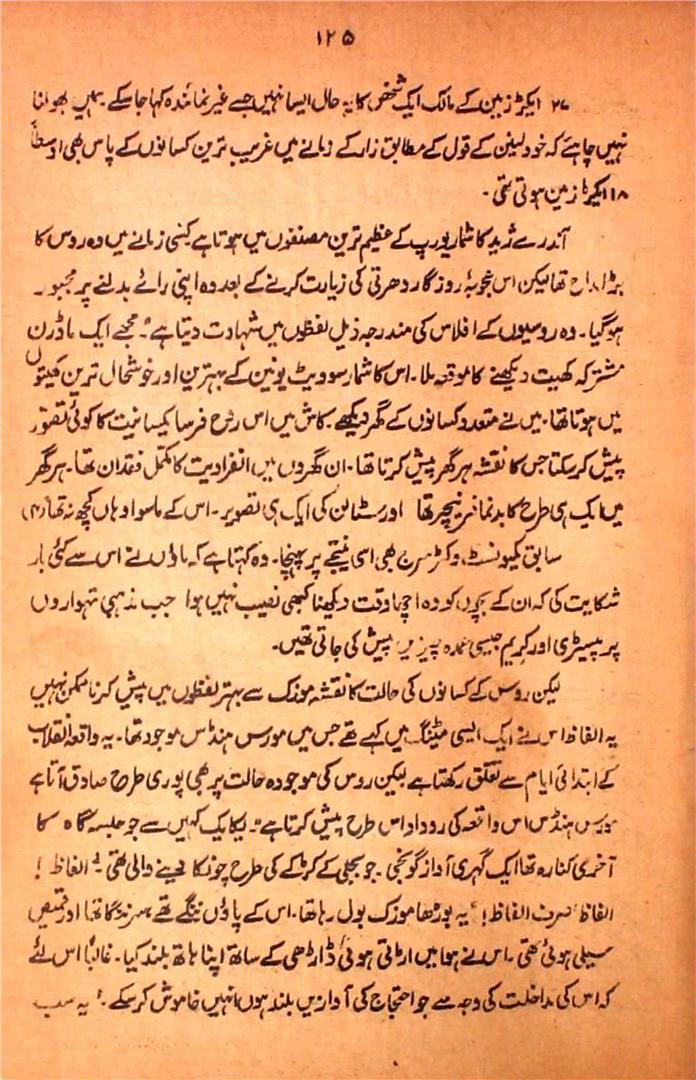 ۱۲۵
۲۷ ایکڑ زمین کے مالک ایک شخص کا یہ حال ایسا نہیں جسے غیر نمائندہ کہا جا سکے۔ ہمیں بھولنا
نہیں چاہئے کہ خود لینن کے قول کے مطابق زار کے زمانے میں غریب ترین کسانوں کے پاس بھی اوسطاً
۱۸ ایکڑ زمین ہوتی تھی۔
آندرے ژید کا شمار یورپ کے عظیم ترین مصنفوں میں ہوتا ہے کسی زمانے میں وہ روس کا
بڑا مداح تھا لیکن اس عجوبۂ روزگار دھرتی کی زیارت کرنے کے بعد وہ اپنی رائے بدلنے پر مجبور
ہو گیا۔ وہ روسیوں کے افلاس کی مندرجہ ذیل لفظوں میں شہادت دیتا ہے "مجھے ایک ماڈرن
مشترکہ کھیت دیکھنے کا موقعہ ملا۔ اس کا شمار سوویٹ یونین کے بہترین اور خوشحال ترین کھیتوں
میں ہوتا تھا۔ میں نے متعدد کسانوں کے گھر دیکھے۔ کاش میں اس روح فرسا یکسانیت کا کوئی تصور
پیش کر سکتا جس کا نقشہ ہر گھر پیش کرتا تھا۔ ان گھروں میں انفرادیت کا مکمل فقدان تھا۔ ہر گھر
میں ایک ہی طرح کا بدنما فرنیچر تھا اور سٹالن کی ایک ہی تصویر۔ اس کے ماسوا وہاں کچھ نہ تھا" (۴)
سابق کمیونسٹ وکٹر سرج بھی اسی نتیجے پر پہنچا۔ وہ کہتا ہے کہ ماؤں نے اس سے کئی بار
شکایت کی کہ ان کے بچوں کو وہ اچھا وقت دیکھنا کبھی نصیب نہیں ہوا جب مذہبی تہواروں
پر پیسٹری اور کریم جیسی عمدہ چیزیں پیش کی جاتی تھیں۔
لیکن روس کے کسانوں کی حالت کا نقشہ موزک سے بہتر لفظوں میں پیش کرنا ممکن نہیں
یہ الفاظ اس نے ایک ایسی میٹنگ میں کہے تھے جس میں مورس ہنڈس موجود تھا۔ یہ واقعہ انقلاب
کے ابتدائی ایام سے تعلق رکھتا ہے لیکن روس کی موجودہ حالت پر بھی پوری طرح صادق آتا ہے
مورس ہنڈس اس واقعہ کی روداد اس طرح پیش کرتا ہے "یکایک کہیں سے جو جلسہ گاہ کا
آخری کنارہ تھا ایک گہری آواز گونجی۔ جو بجلی کے کڑاکے کی طرح چونکا دینے والی تھی۔ "الفاظ!
الفاظ صرف الفاظ!" یہ بوڑھا موزک بول رہا تھا۔ اس کے پاؤں ننگے تھے، سر ننگا تھا اور قمیض
میلی ہوئی تھی۔ اس نے ہوا میں اڑتی ہوئی ڈاڑھی کے ساتھ اپنا ہاتھ بلند کیا۔ غالباً اس لئے
کہ اس کی مداخلت کی وجہ سے جو احتجاج کی آوازیں بلند ہوں انہیں خاموش کر سکے۔ "یہ سب